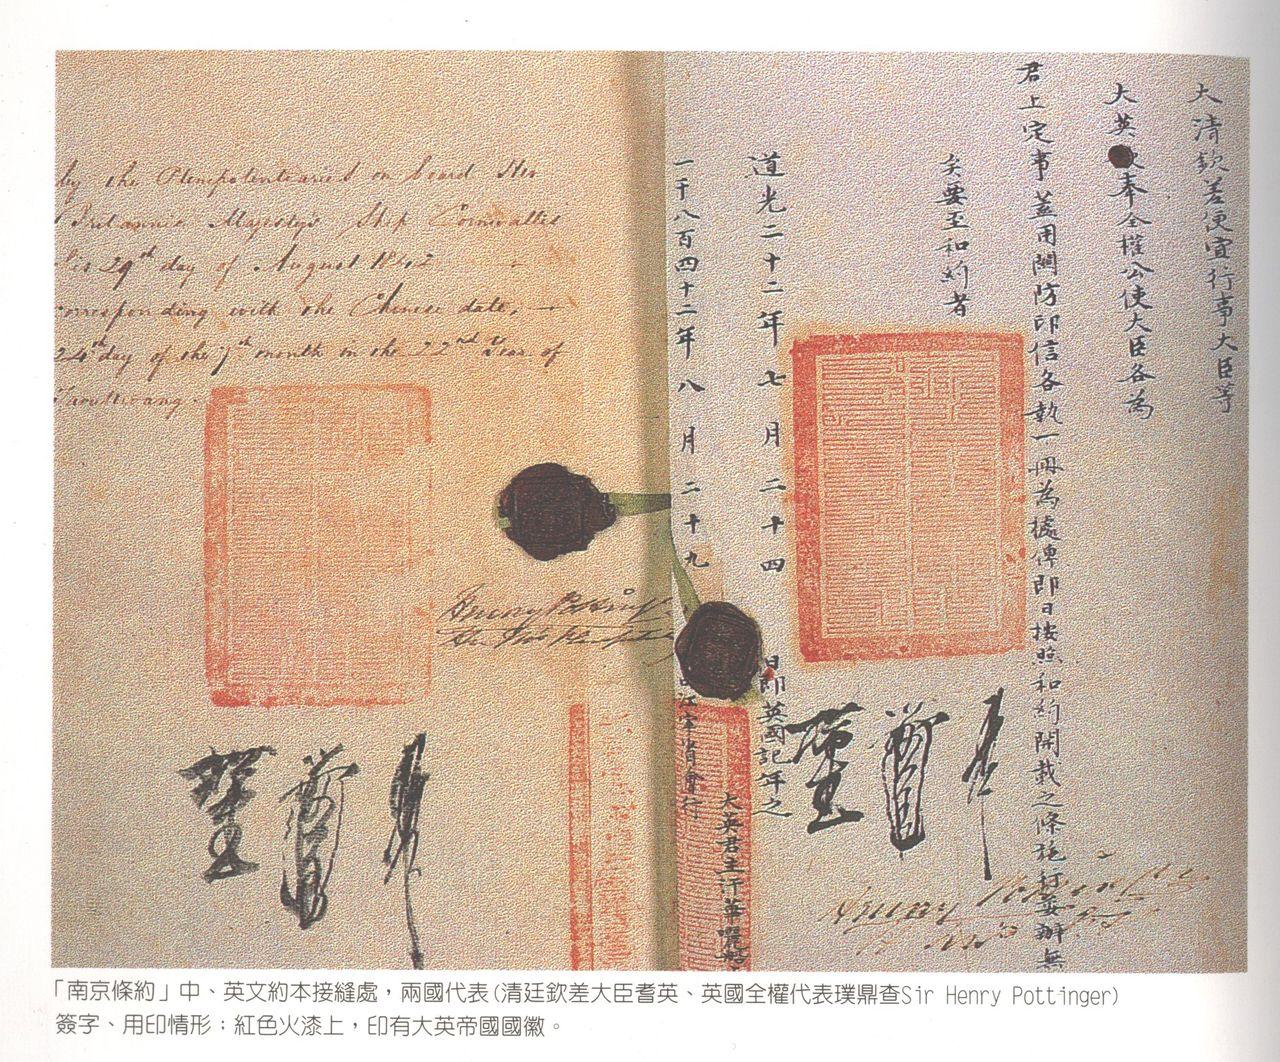 by the Plenipotentiaries on board Her
Britannic Majesty's Ship Cornwallis
this 29th day of August 1842
corresponding with the Chinese date,
24th day of the 7th month in the 22nd Year of
Taoukwang.
大清欽差便宜行事大臣等
大英欽奉全權公使大臣各為
君上定事蓋用關防印信各執一冊為據俾即日按照和約開載之條施行妥辦無
矣要至和約者
道光二十二年七月二十四日即英國記年之
一千八百四十二年八月二十九
江寧省會行
大英君主汗華囇船
Henry Pottinger
Henry Pottinger
「南京條約」中、英文約本接縫處，兩國代表(清廷欽差大臣耆英、英國全權代表璞鼎查Sir Henry Pottinger)
簽字、用印情形；紅色火漆上，印有大英帝國國徽。